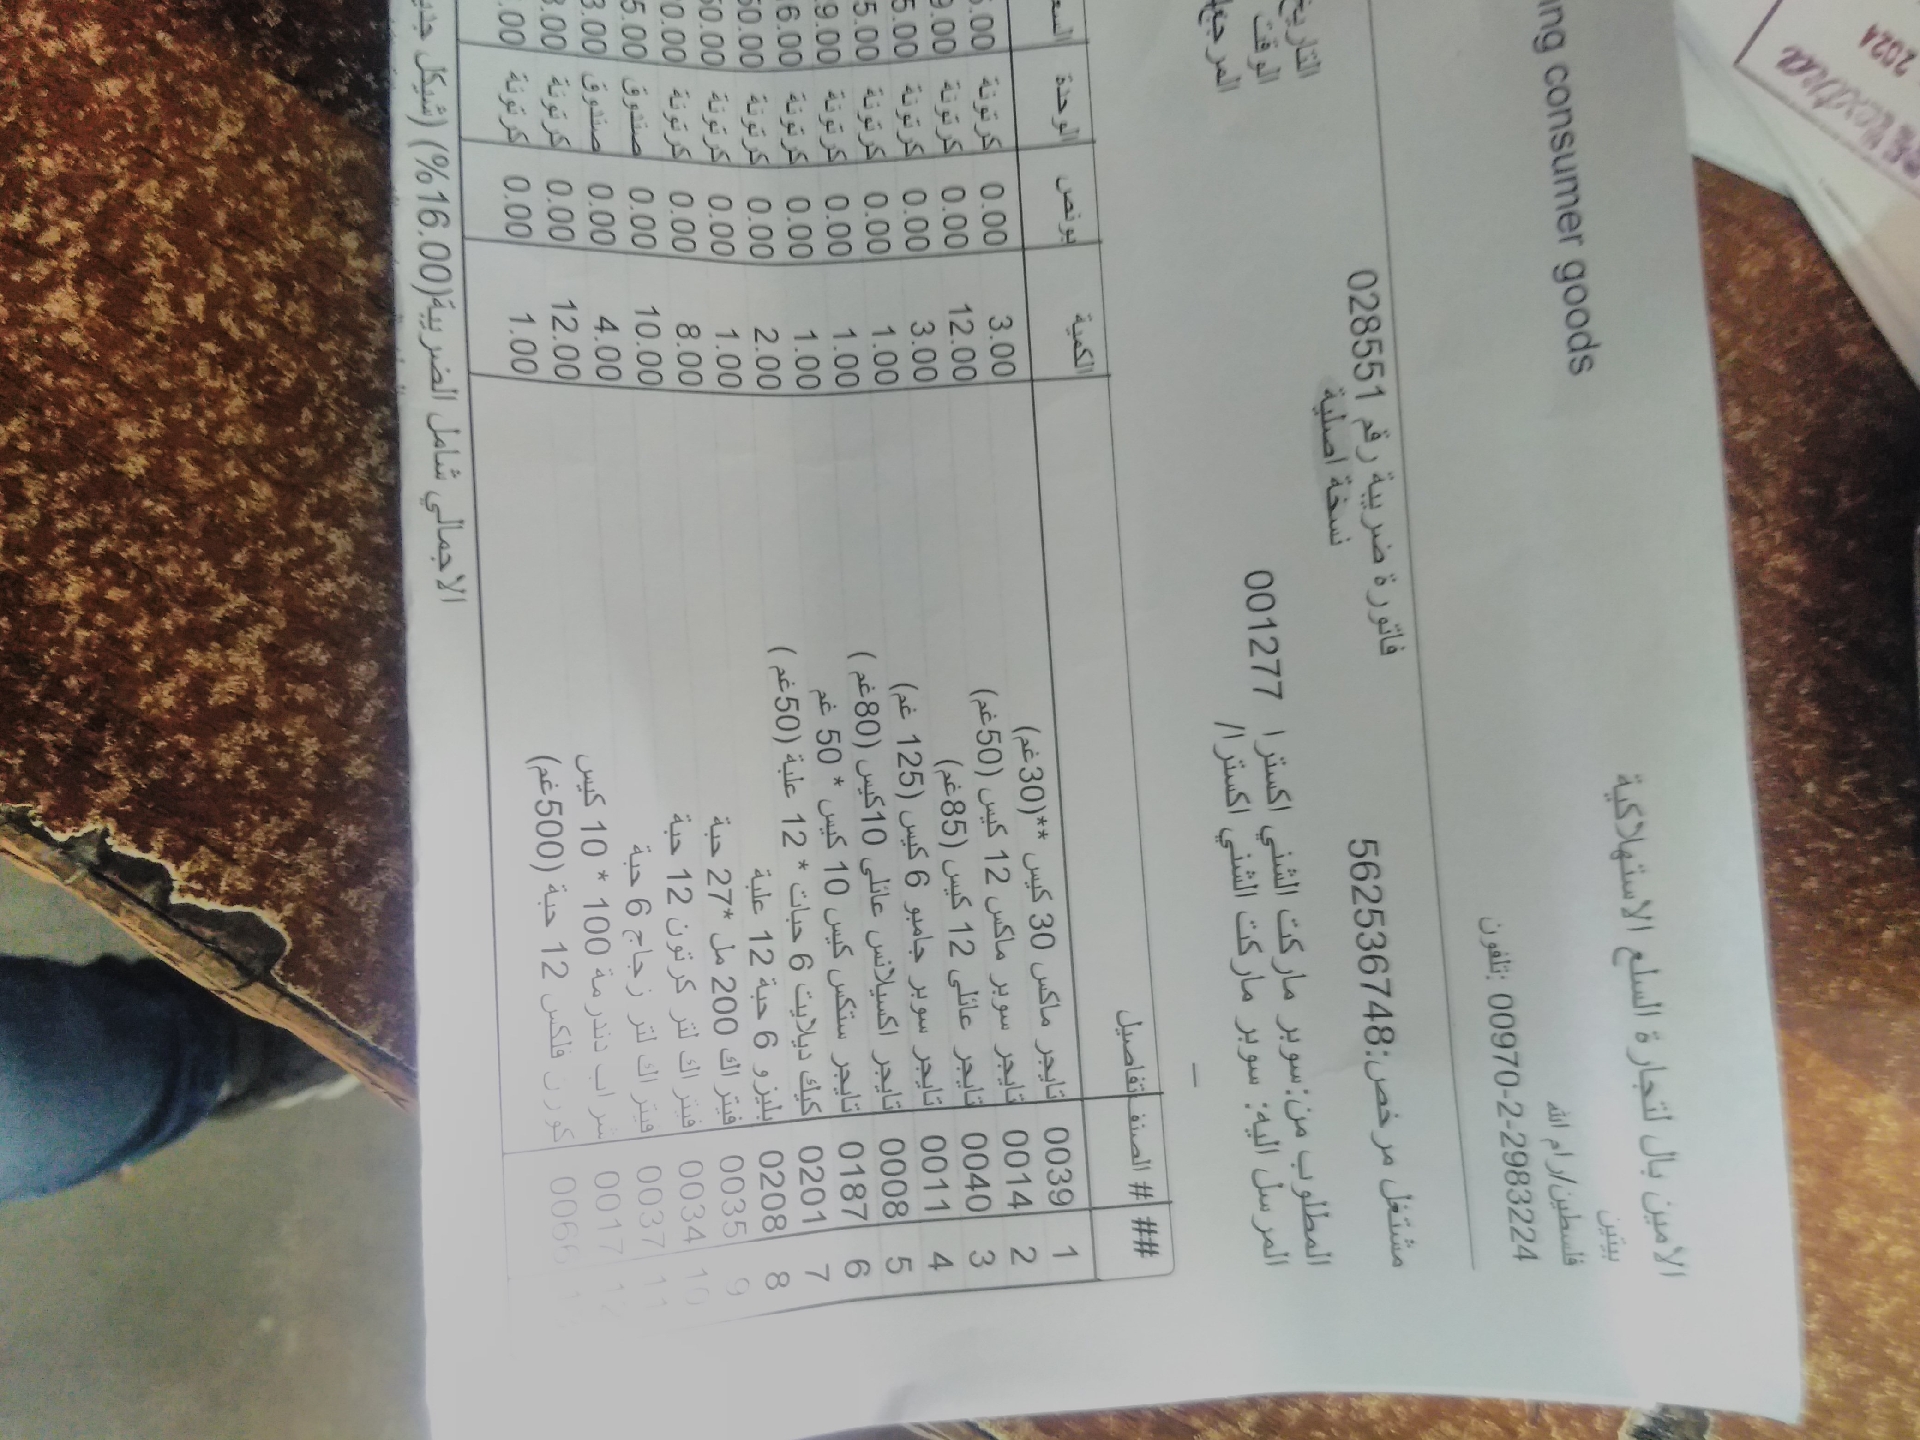 الامين بال لتجارة السلع الاستهلاكية
ing consumer goods
بيتين
فلسطين/رام الله
تلفون: 00970-2-2983224
مشتغل مرخص:562536748
فاتورة ضريبية رقم 028551
نسخة اصلية
المطلوب من:سوبر ماركت الشني اكسترا 001277
المرسل اليه: سوبر ماركت الشني اكسترا/
التاريخ
الوقت
## الصنف # تفاصيل الكمية بونص الوحدة
1 0039 تايجر ماكس 30 كيس **(30غم) 3.00 0.00 كرتونة
2 0014 تايجر سوبر ماكس 12 كيس (50غم) 12.00 0.00 كرتونة
3 0040 تايجر عائلي 12 كيس (85غم) 3.00 0.00 كرتونة
4 0011 تايجر سوبر جامبو 6 كيس (125 غم) 1.00 0.00 كرتونة
5 0008 تايجر اكسيلانس عائلي 10كيس (80غم ) 1.00 0.00 كرتونة
6 0187 تايجر ستكس كيس 10 كيس * 50 غم 1.00 0.00 كرتونة
7 0201 كيك ديلايت 6 حبات * 12 علبة (50غم ) 2.00 0.00 كرتونة
8 0208 بليزو 6 حبة 12 علبة 1.00 0.00 كرتونة
9 0035 فيتراك 200 مل *27 حبة 8.00 0.00 كرتونة
10 0034 فيتراك لتر كرتون 12 حبة 10.00 0.00 صندوق
11 0037 فيتراك لتر زجاج 6 حبة 4.00 0.00 صندوق
12 0017 شراب دندرمة 100 * 10 كيس 12.00 0.00 كرتونة
0066 كورن فلكس 12 حبة (500غم) 1.00 0.00 كرتونة
الاجمالي شامل الضريبية(16.00%) (شيكل
2024